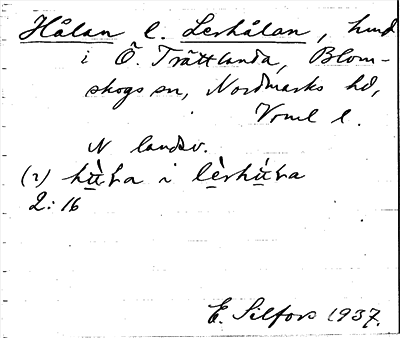 Hålan l. Lerhålan, hmd
i Ö. Trättlanda, Blom-
skogs sn, Nordmarks hd,
Vrml l.
N landsv.
(2) i
2:16
E. Silfors 1937.